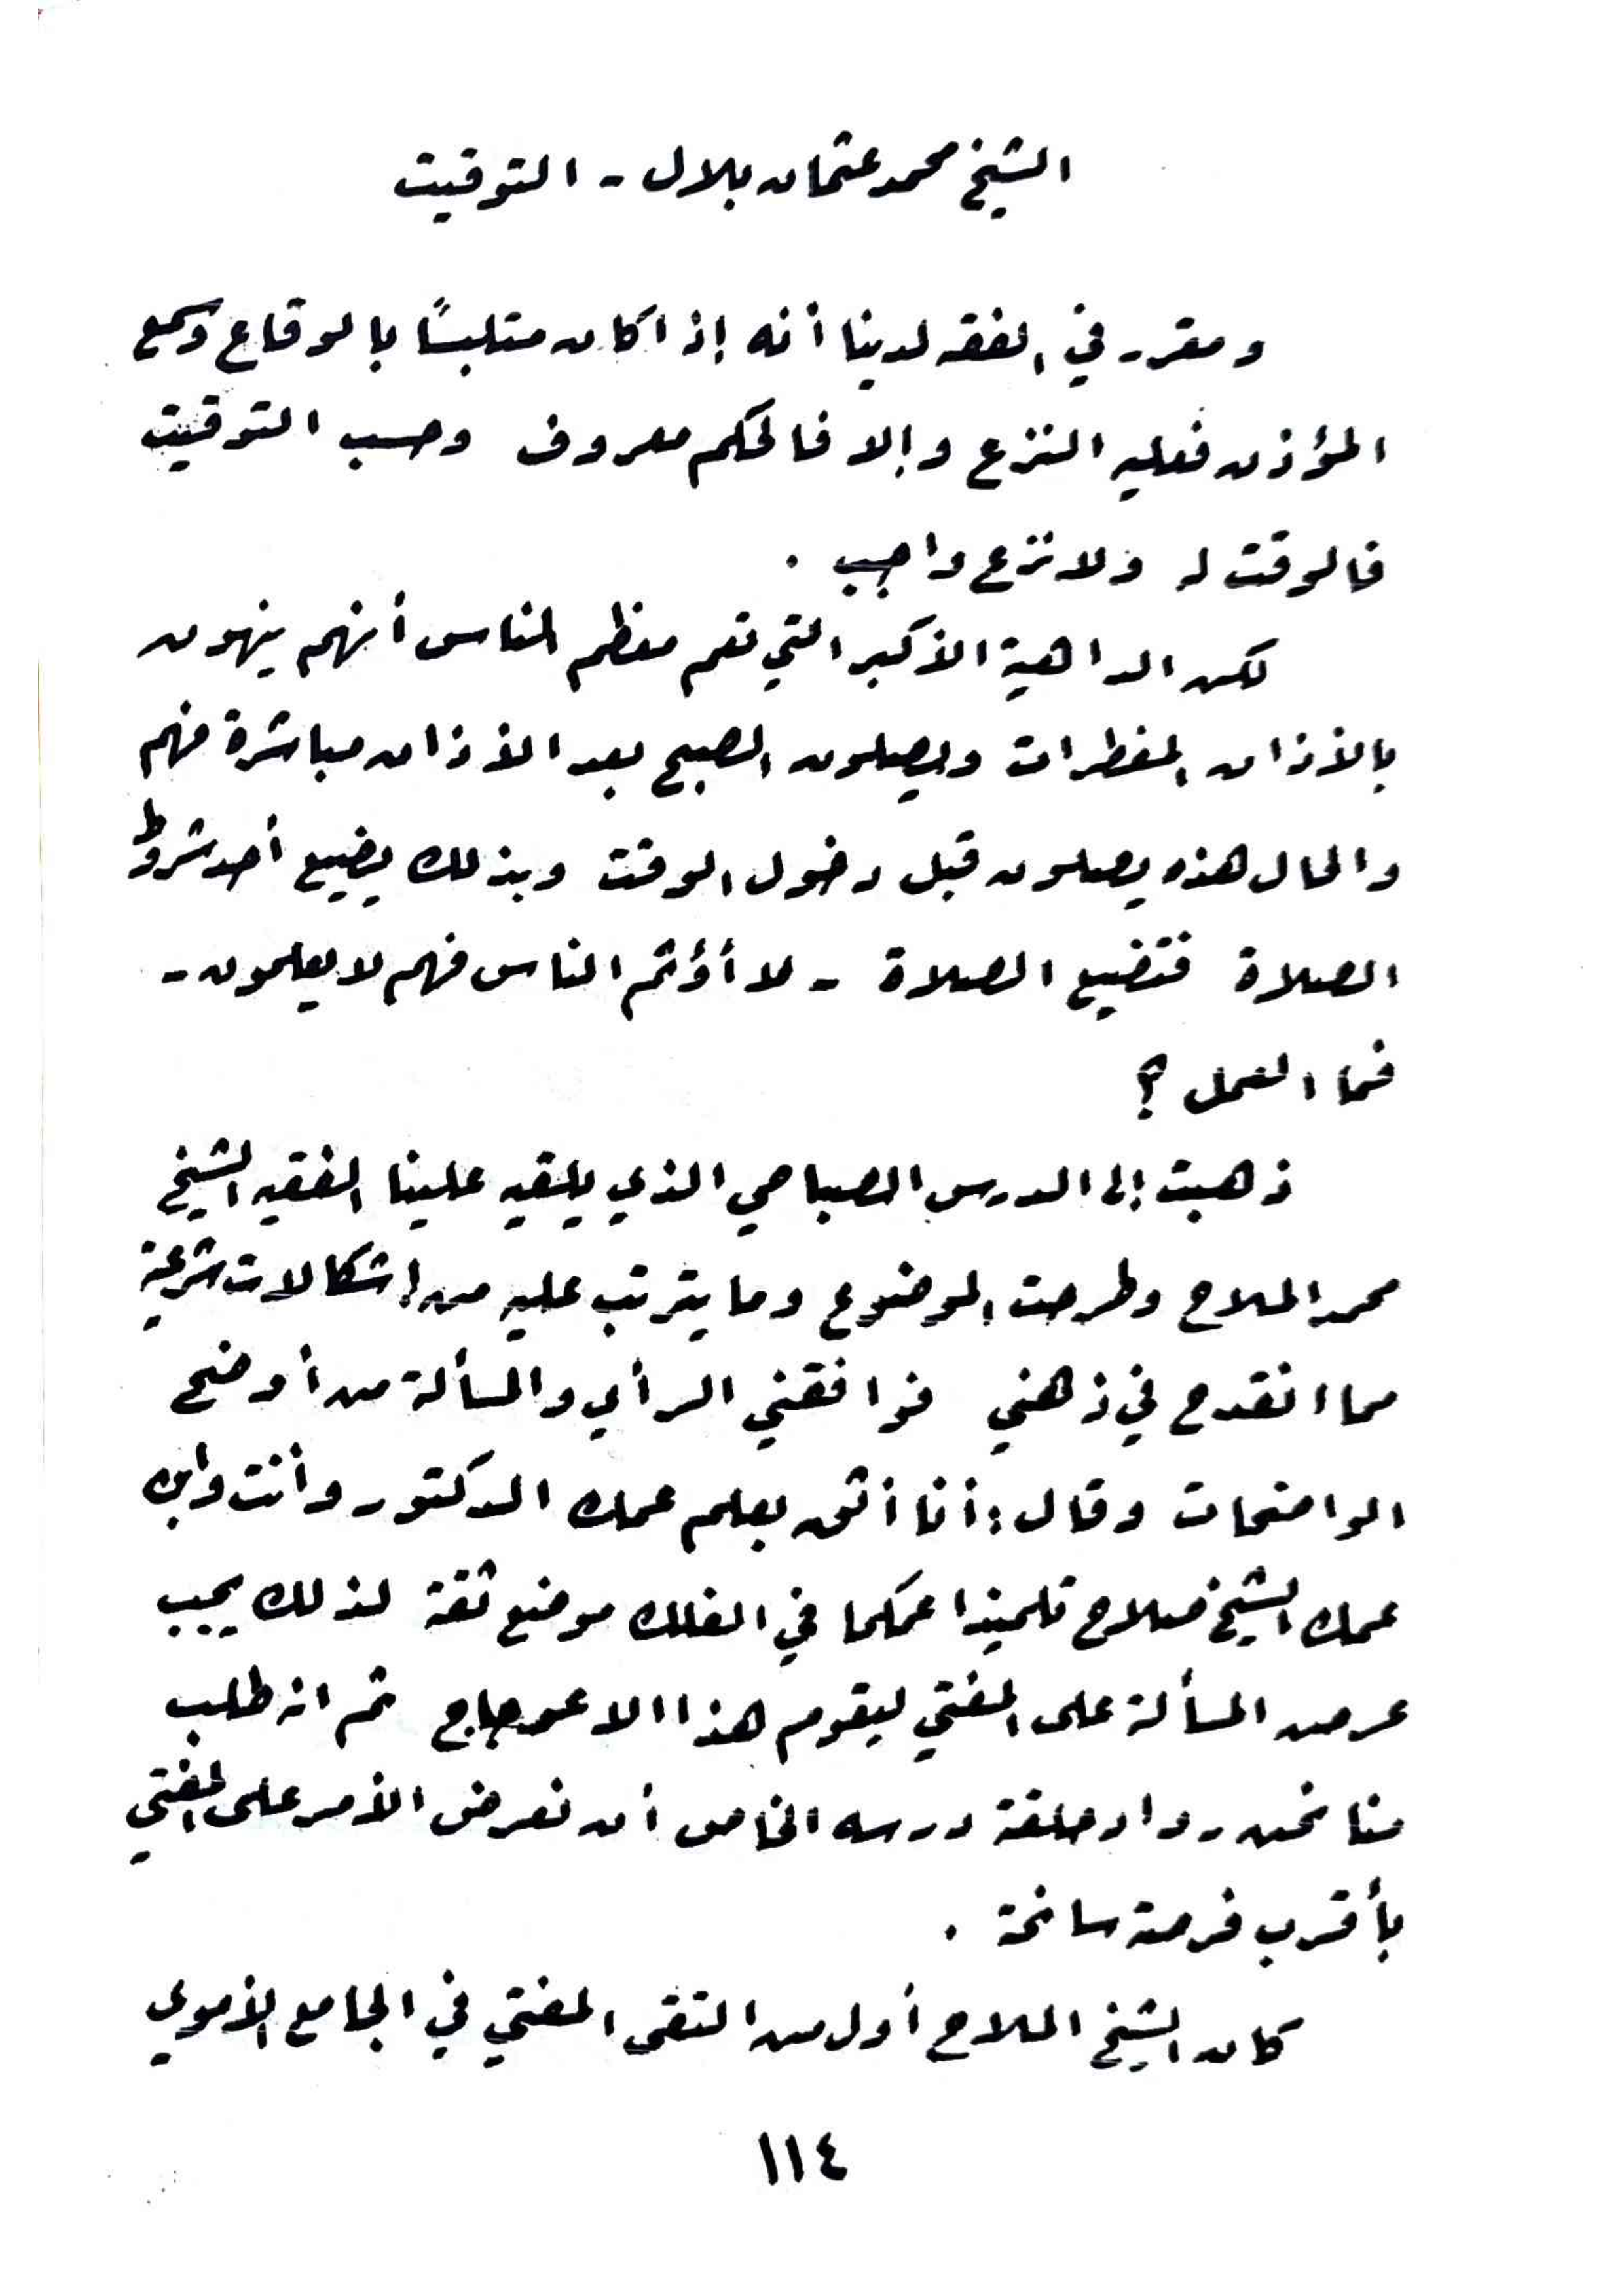 الشيخ محمد عثمان بلال - التوقيت
ومقرر في الفقه لدينا أنه إذا كان متلبسًا بالوقاع وسمع
المؤذن فعليه النزع وإلا فالحكم معروف وحسب التوقيت
فالوقت له ولا نزع واجب .
لكن الداهية الأكبر التي تعم معظم الناس أنهم ينهون
بالأذان المفطرات ويصلون الصبح بعد الأذان مباشرة فهم
والحال هذه يصلون قبل دخول الوقت وبذلك يضيع أحد شروط
الصلاة فتضيع الصلاة - لا أؤثم الناس فهم لا يعلمون -
فما العمل ؟
ذهبت إلى الدرس الصباحي الذي يلقيه علينا الفقيه الشيخ
محمد الملاح وطرحت الموضوع وما يترتب عليه من إشكالات شرعية
مما انقدح في ذهني فوافقني الرأي والمسألة من أوضح
الواضحات وقال : أنا أثق بعلم عمك الدكتور وأنت وابن
عمك الشيخ صلاح تلميذا عمكما في الفلك موضع ثقة لذلك يجب
عرض المسألة على المفتي ليقوم هذا الاعوجاج ثم انه طلب
منا نحن رواد حلقة درسه الخاص أن نعرض الأمر على المفتي
بأقرب فرصة سانحة .
كان الشيخ الملاح أول من التقى المفتي في الجامع الأموي
١١٤